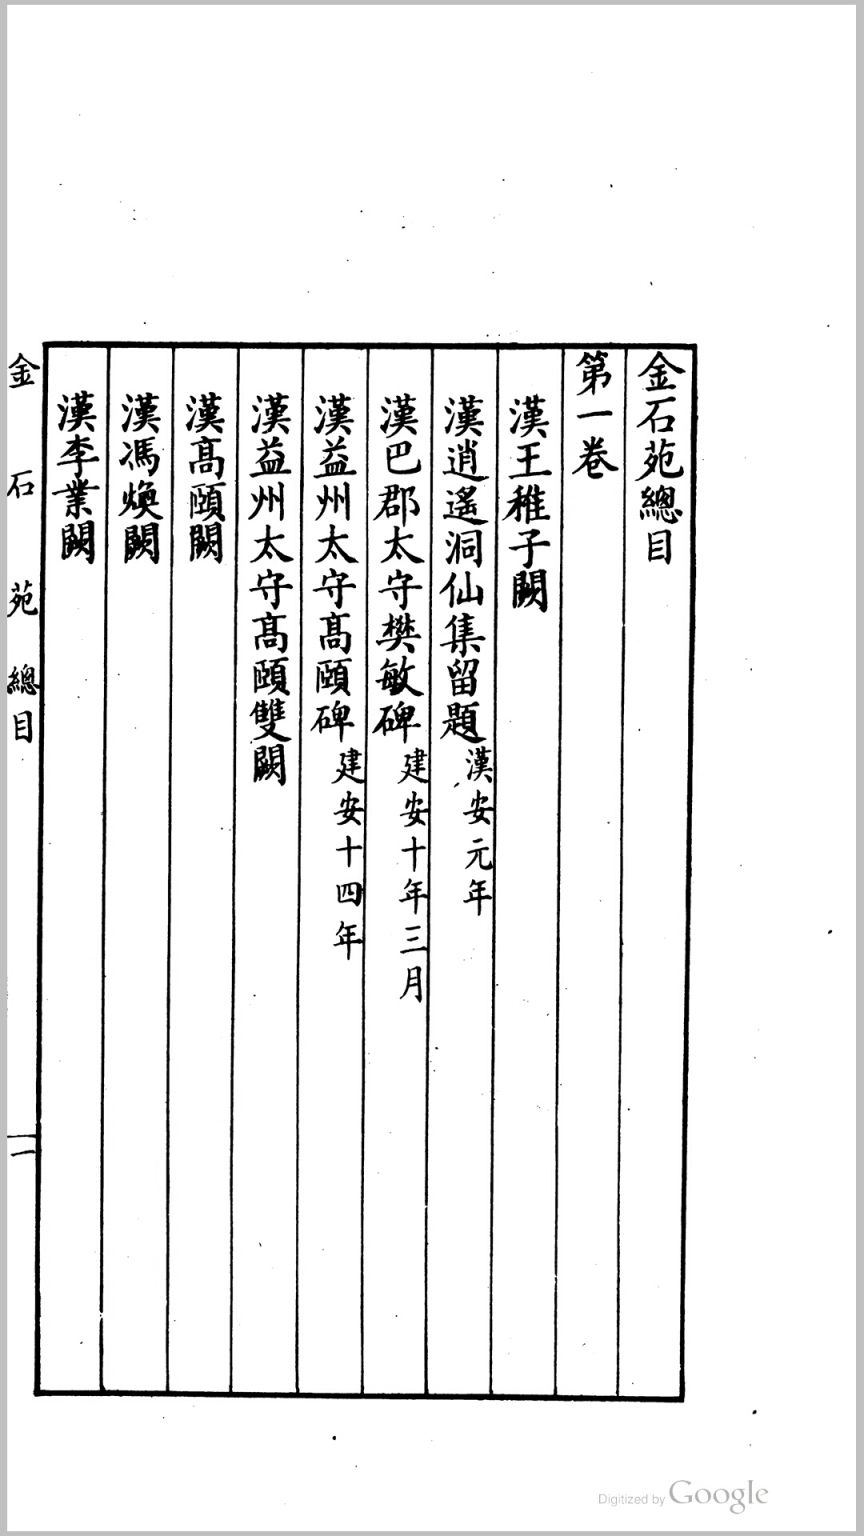 金石苑總目
第一卷
漢王稚子闕
漢逍遙洞仙集留題漢安元年
漢巴郡太守樊敏碑建安十年三月
漢益州太守髙頤碑建安十四年
漢益州太守髙頤雙闕
漢髙頤闕
漢馮煥闕
漢李業闕
金石苑總目
一
Digitized by Google